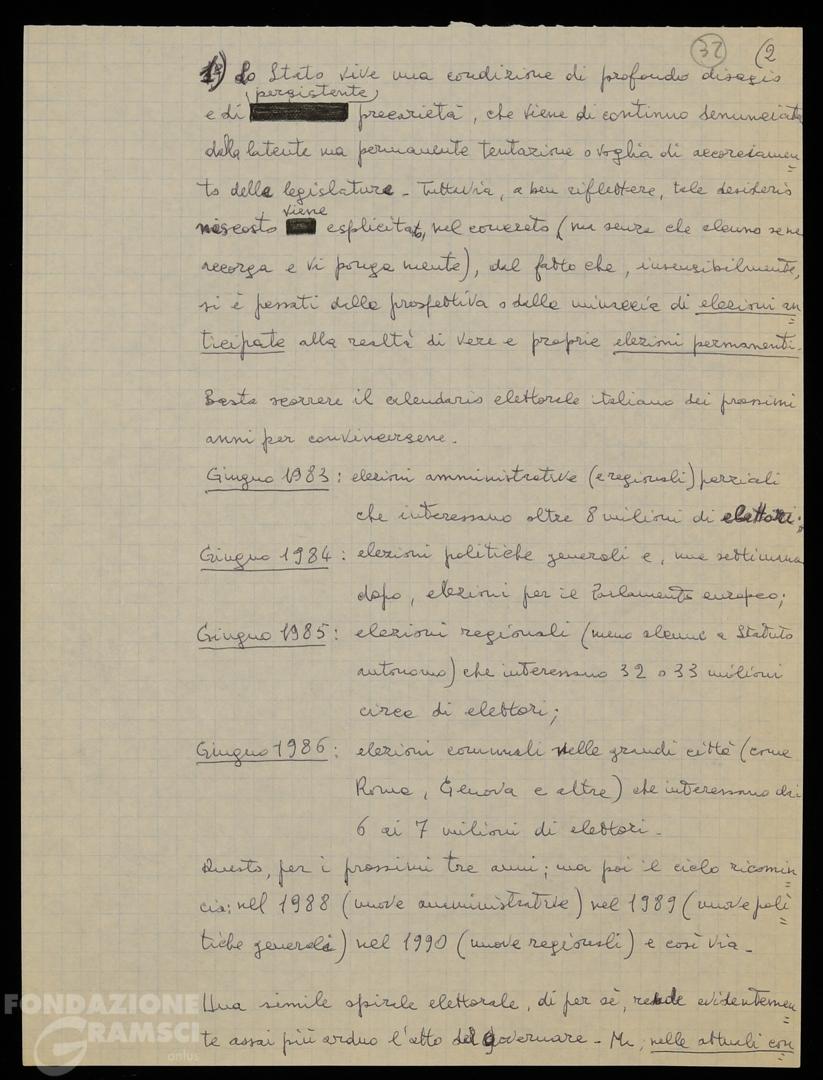 32 (2
1º) Lo Stato vive una condizione di profondo disagio
persistente
e di precarietà, che viene di continuo denunciata
dalla latente ma permanente tentazione o voglia di accorciamen=
to delle legislature - Tuttavia, a ben riflettere, tale desiderio
viene
nascosto esplicitato, nel concreto (ma senza che alcuno se ne
accorga e vi ponga mente), dal fatto che, insensibilmente,
si è passati dalla prospettiva o dalla minaccia di elezioni an=
ticipate alla realtà di vere e proprie elezioni permanenti.
Basta scorrere il calendario elettorale italiano dei prossimi
anni per convincersene.
Giugno 1983: elezioni amministrative (e regionali) parziali
che interessano oltre 8 milioni di elettori;
Giugno 1984: elezioni politiche generali e, una settimana
dopo, elezioni per il Parlamento europeo;
Giugno 1985: elezioni regionali (meno alcune a Statuto
autonomo) che interessano 32 o 33 milioni
circa di elettori;
Giugno 1986: elezioni comunali nelle grandi città (come
Roma, Genova e altre) che interessano dai
6 ai 7 milioni di elettori -
Questo, per i prossimi tre anni; ma poi il ciclo ricomin=
cia: nel 1988 (nuove amministrative) nel 1989 (nuove poli=
tiche generali) nel 1990 (nuove regionali) e così via -
Una simile spirale elettorale, di per sé, rende evidentemen=
te assai più arduo l'atto del governare - Ma, nelle attuali con
FONDAZIONE
GRAMSCI
onlus